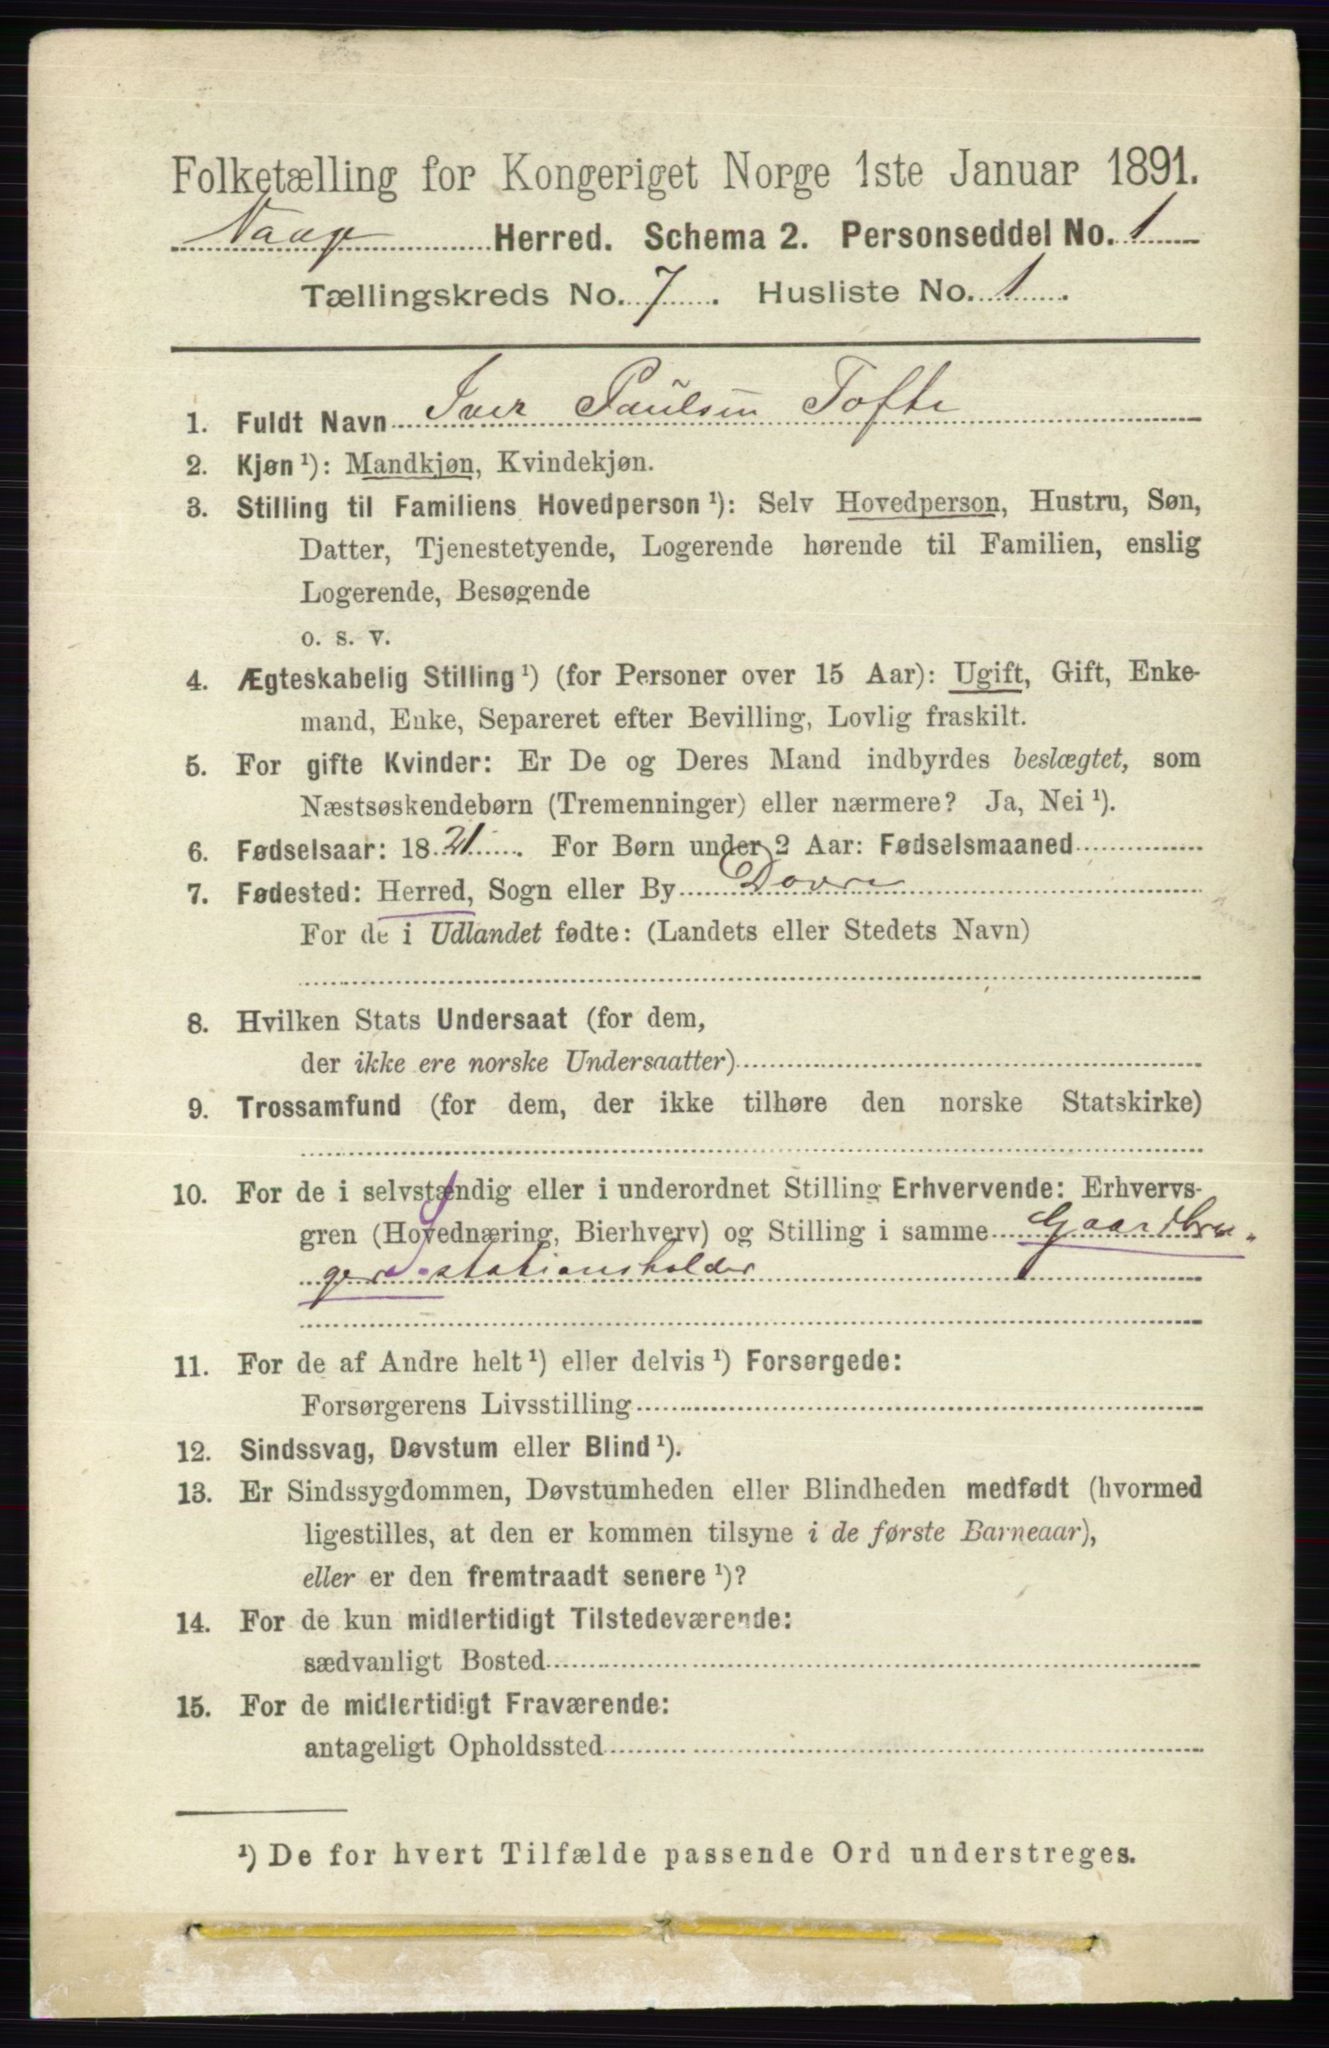 Folketælling for Kongeriget Norge 1ste Januar 1891.
Vaage Herred. Schema 2. Personseddel No. 1
Tællingskreds No. 7. Husliste No. 1.
1. Fuldt Navn Iver Paulsen Tofte
2. Kjøn ¹): Mandkjøn, Kvindekjøn.
3. Stilling til Familiens Hovedperson ¹): Selv Hovedperson, Hustru, Søn,
Datter, Tjenestetyende, Logerende hørende til Familien, enslig
Logerende, Besøgende
o. s. v.
4. Ægteskabelig Stilling ¹) (for Personer over 15 Aar): Ugift, Gift, Enke-
mand, Enke, Separeret efter Bevilling, Lovlig fraskilt.
5. For gifte Kvinder: Er De og Deres Mand indbyrdes beslægtet, som
Næstsøskendebørn (Tremenninger) eller nærmere? Ja, Nei ¹).
6. Fødselsaar: 1821. For Børn under 2 Aar: Fødselsmaaned
7. Fødested: Herred, Sogn eller By Dovre
For de i Udlandet fødte: (Landets eller Stedets Navn)
8. Hvilken Stats Undersaat (for dem,
der ikke ere norske Undersaatter)
9. Trossamfund (for dem, der ikke tilhøre den norske Statskirke)
10. For de i selvstændig eller i underordnet Stilling Erhvervende: Erhvervs-
gren (Hovednæring, Bierhverv) og Stilling i samme Gaardbru-
ger stationsholder
11. For de af Andre helt ¹) eller delvis ¹) Forsørgede:
Forsørgerens Livsstilling
12. Sindssvag, Døvstum eller Blind ¹).
13. Er Sindssygdommen, Døvstumheden eller Blindheden medfødt (hvormed
ligestilles, at den er kommen tilsyne i de første Barneaar),
eller er den fremtraadt senere ¹)?
14. For de kun midlertidigt Tilstedeværende:
sædvanligt Bosted
15. For de midlertidigt Fraværende:
antageligt Opholdssted
¹) De for hvert Tilfælde passende Ord understreges.